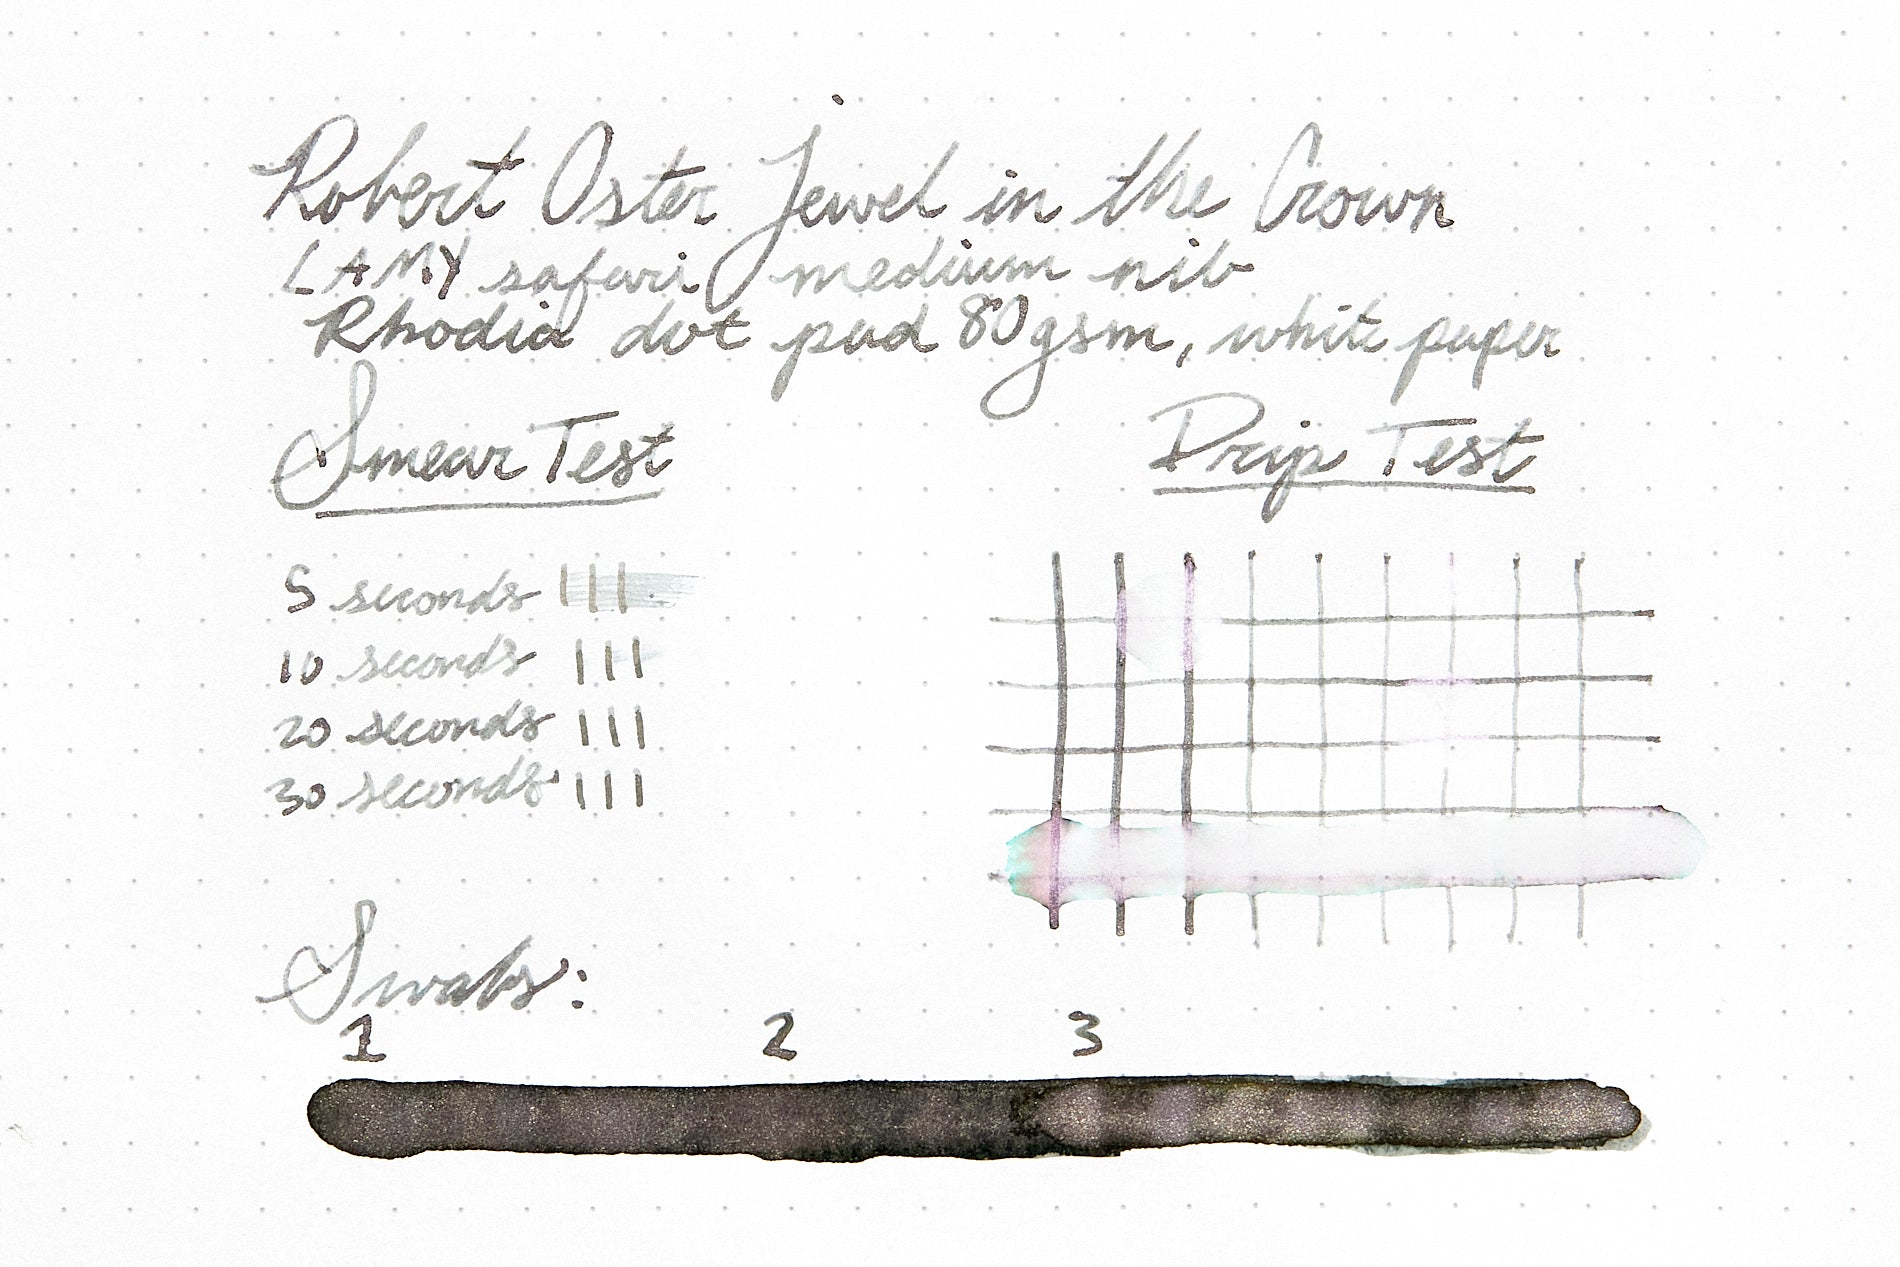 Robert Oster Jewel in the Crown
LAMY safari medium nib
Rhodia dot pad 80gsm, white paper
Smear Test
5 seconds
10 seconds
20 seconds
30 seconds
Drip Test
Swabs:
1 2 3